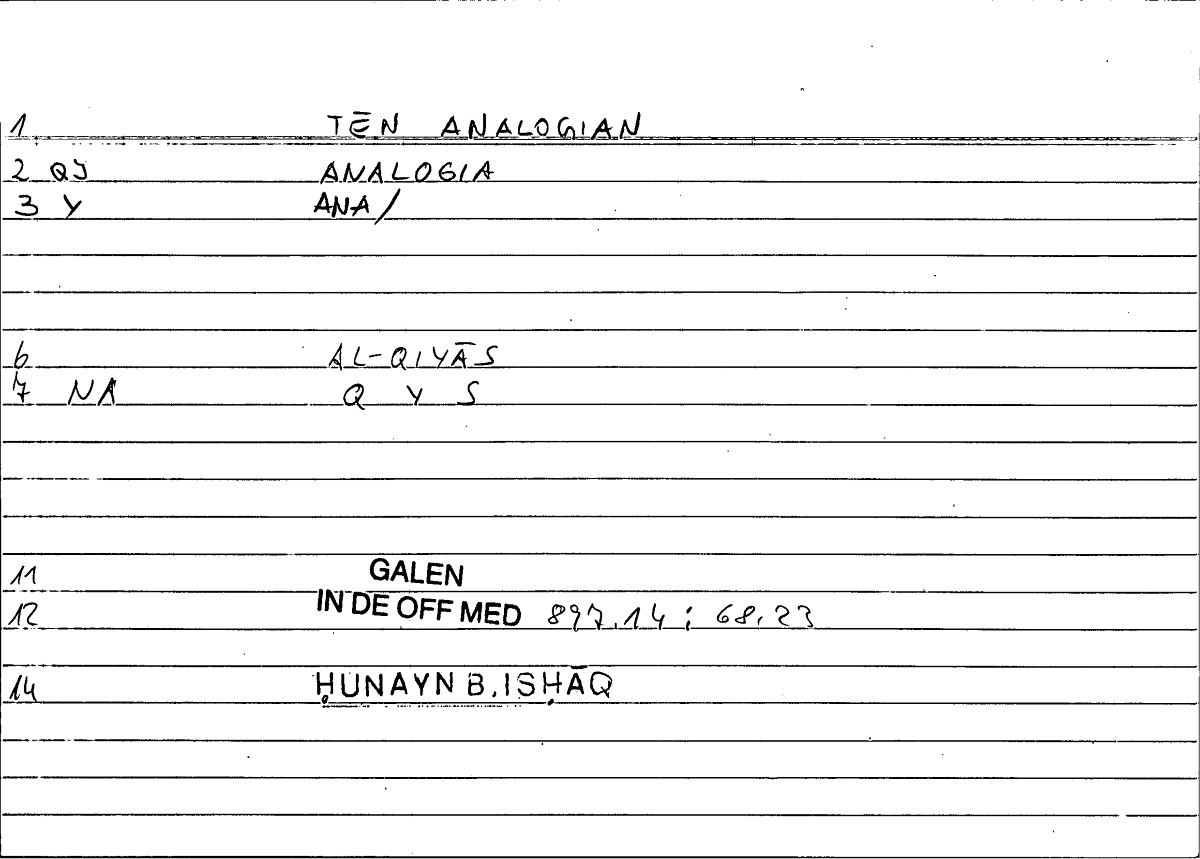 1 TĒN ANALOGIAN
2 QJ ANALOGIA
3 Y ANA/
6 AL-QIYĀS
7 NA Q Y S
11 GALEN
12 IN DE OFF MED 897.14 ; 68.23
14 ḤUNAYN B. ISḤĀQ